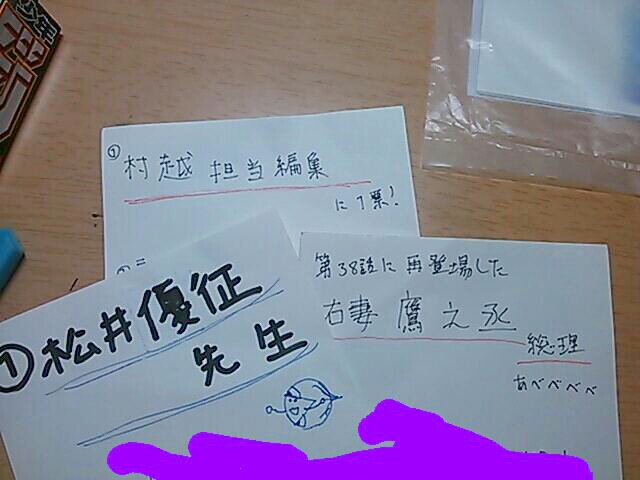 少年
①
村越 担当編集
に1票!
第38話に再登場した
右妻 鷹之丞
総理
あべべべべ
①松井優征
先生